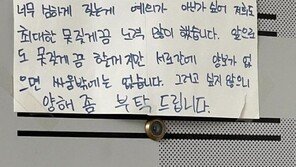 너무 심하게 짖는게 예의가 아닌가 싶어 저희도
최대한 못짖게끔 노력 많이 했습니다. 앞으로
도 못짖게끔 할게지만 서로간에 양보가 없
으면 싸울밖에는 없습니다. 그러고 싶지 않으니
양해 좀 부탁 드립니다.